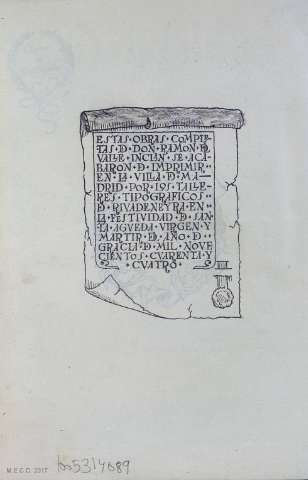 ESTAS·OBRAS·COMPLE
TAS·D·DON·RAMON·D·
VALLE·INCLAN·SE·ACA
BARON·D·IMPRIMIR·
EN·LA·VILLA·D·MA-
DRID·POR·LOS·TALLE
RES·TIPOGRAFICOS
D·RIVADENEYRA·EN·
LA·FESTIVIDAD·D·SAN
TA·AGUEDA·VIRGEN·Y
MARTIR·D·AÑO·D·
GRACIA·D·MIL·NOVE
CIENTOS·CUARENTA·Y
·CUATRO·
M.E.C.D. 2017